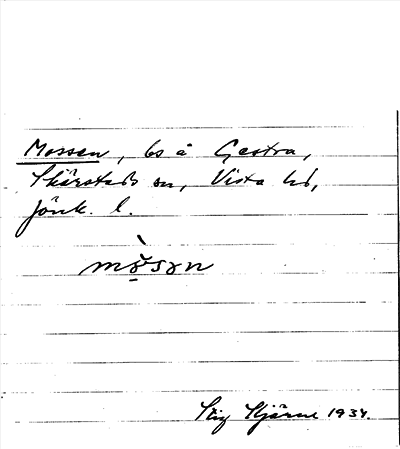 Mossen, bs å Gestra,
Skärstads sn, Vista hd,
Jönk. l.
Stig Hjärne 1934.